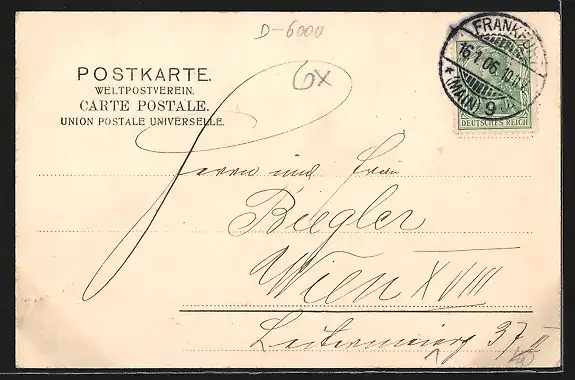 D-6000
6x
POSTKARTE.
WELTPOSTVEREIN.
CARTE POSTALE.
UNION POSTALE UNIVERSELLE.
FRANKFURT
16.1.06. 10
* (MAIN) 9
DEUTSCHES REICH
Herrn und Frau
Biegler
Wien XVIII
37